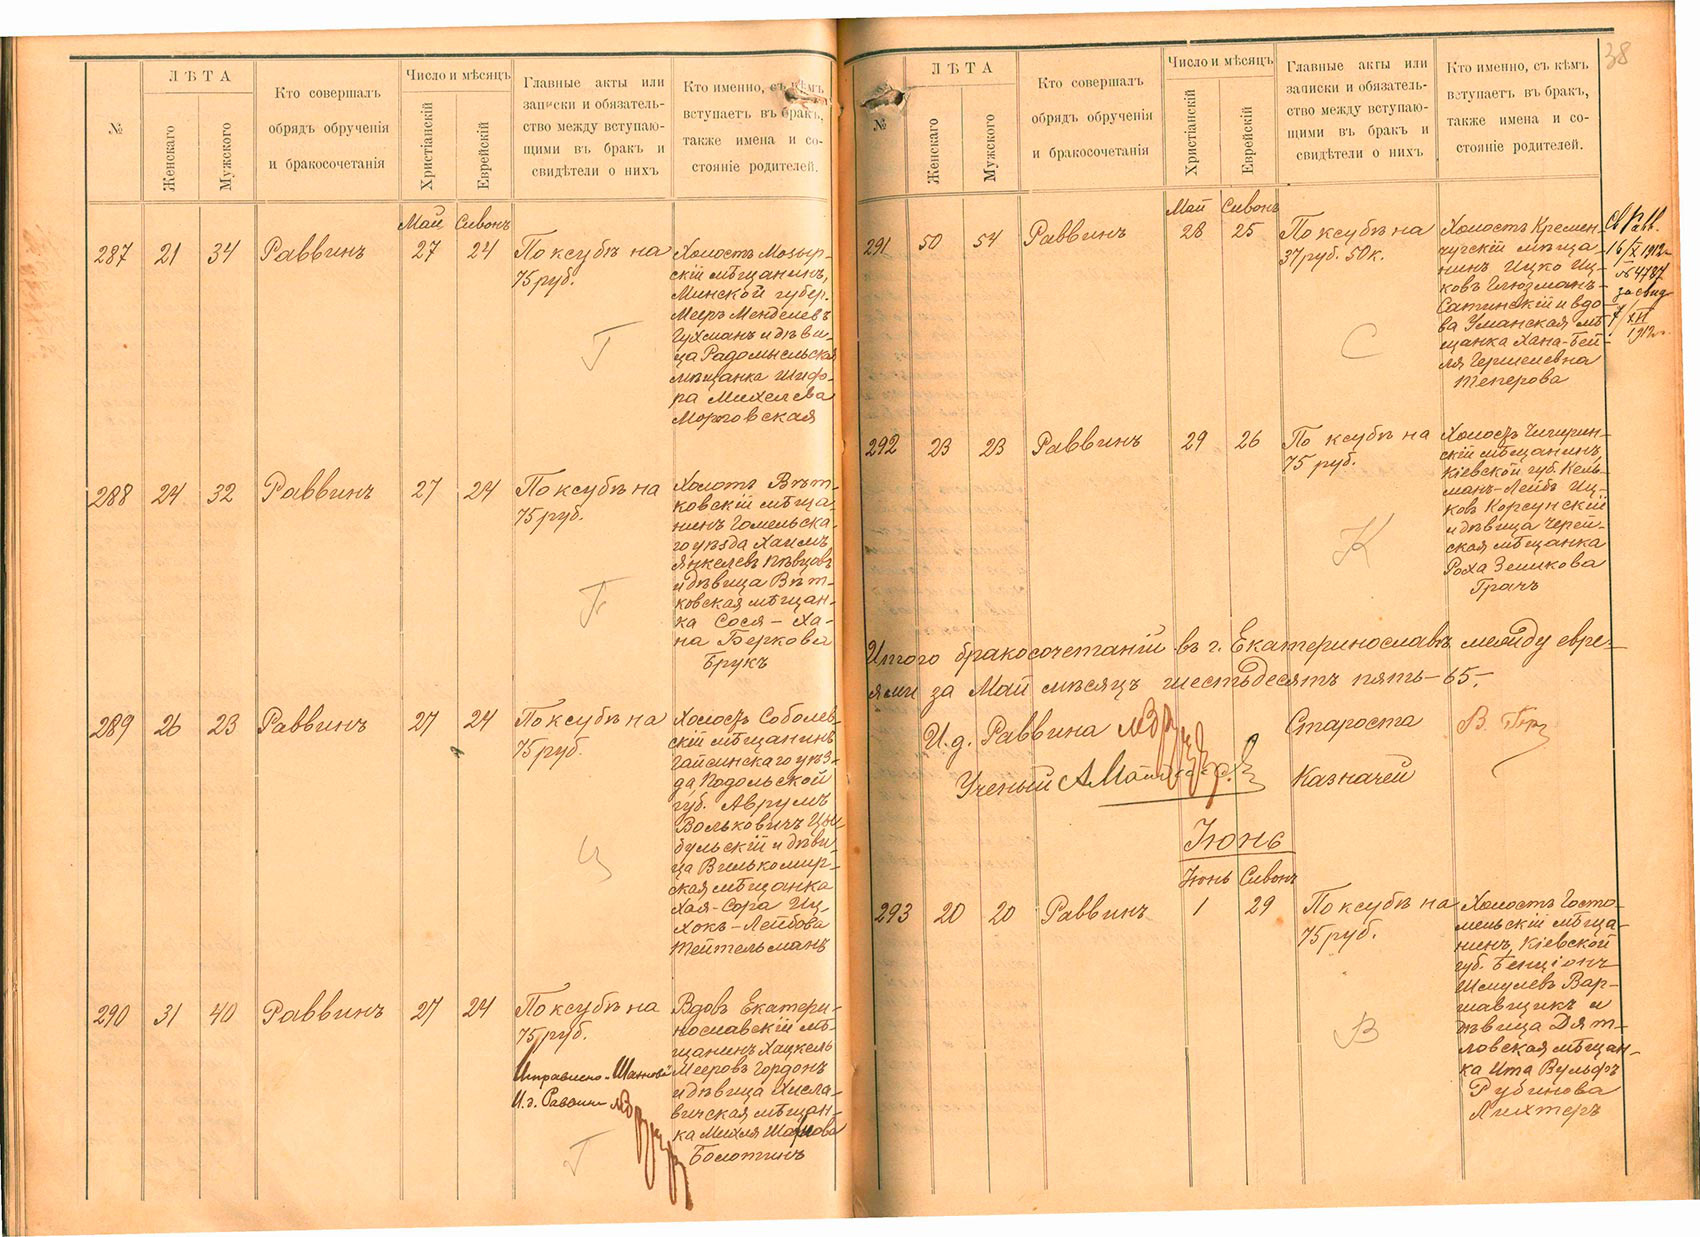 №
ЛѢТА
Женскаго
Мужского
Кто совершалъ
обрядъ обрученія
и бракосочетанія
Число и мѣсяцъ
Христіанскій
Еврейскій
Главные акты или
записки и обязатель-
ство между вступаю-
щими въ бракъ и
свидѣтели о нихъ
Кто именно, съ кѣмъ
вступаетъ въ бракъ,
также имена и со-
стояніе родителей.
Май Сивонъ
287 21 34 Раввинъ 27 24
По ксубѣ на
75 руб.
Г
Холостъ Мозыр-
скій мѣщанинъ,
Минской губер.
Меиръ Менделевъ
Гухманъ и дѣви-
ца Радомысльская
мѣщанка Шифо-
ра Михелева
Морговская
288 24 32 Раввинъ 27 24
По ксубѣ на
75 руб.
Холостъ Вѣт-
ковскій мѣща-
нинъ Гомельска-
го уѣзда Хаимъ
Янкелевъ Пѣвцовъ
и дѣвица Вѣт-
ковская мѣщан-
ка Сося-Ха-
на Беркова
Брукъ
289 26 23 Раввинъ 27 24
По ксубѣ на
75 руб.
Ц
Холостъ Соболев-
скій мѣщанинъ
Гайсинскаго уѣз-
да, Подольской
губ. Аврумъ
Вольковичъ Цы-
бульскій и дѣви-
ца Вилькомир-
ская мѣщанка
Хая-Сора Иц-
хокъ-Лейбова
Тейтельманъ
290 31 40 Раввинъ 27 24
По ксубѣ на
75 руб.
И.д. Раввина
Г
Вдовъ Екатери-
нославскій мѣ-
щанинъ Хацкель
Мееровъ Гордонъ
и дѣвица Хисла-
вичская мѣщан-
ка Михля
Болотинъ
38
№
ЛѢТА
Женскаго
Мужского
Кто совершалъ
обрядъ обрученія
и бракосочетанія
Число и мѣсяцъ
Христіанскій
Еврейскій
Главные акты или
записки и обязатель-
ство между вступаю-
щими въ бракъ и
свидѣтели о нихъ
Кто именно, съ кѣмъ
вступаетъ въ бракъ,
также имена и со-
стояніе родителей.
Май Сивонъ
291 50 54 Раввинъ 28 25
По ксубѣ на
37 руб. 50 к.
С
Холостъ Кремен-
чугскій мѣща-
нинъ Ицко Иц-
ковъ Глюзманъ-
Сатинскій и вдо-
ва Уманская мѣ-
щанка Хана-Бей-
ля Гершелевна
Теперова
16/X 1912 г.
№ 4737
7/XII
1912 г.
292 23 23 Раввинъ 29 26
По ксубѣ на
75 руб.
К
Холостъ Чигирин-
скій мѣщанинъ,
Кіевской губ. Кель-
манъ-Лейбъ Иц-
ковъ Корсунскій
и дѣвица Черей-
ская мѣщанка
Роха Зеликова
Грачъ
Итого бракосочетаній въ г. Екатеринославѣ между евре-
ями за Май мѣсяцъ шестьдесятъ пять-65.-
И.д. Раввина
Староста
Ученый
Казначей
Іюнь
Іюнь Сивонъ
293 20 20 Раввинъ 1 29
По ксубѣ на
75 руб.
В
Холостъ Госто-
мельскій мѣща-
нинъ, Кіевской
губ. Бенціонъ
Шмулевъ Вар-
шавщикъ и
дѣвица Дят-
ловская мѣщан-
ка Ита Вульфъ
Рубинова
Лихтеръ